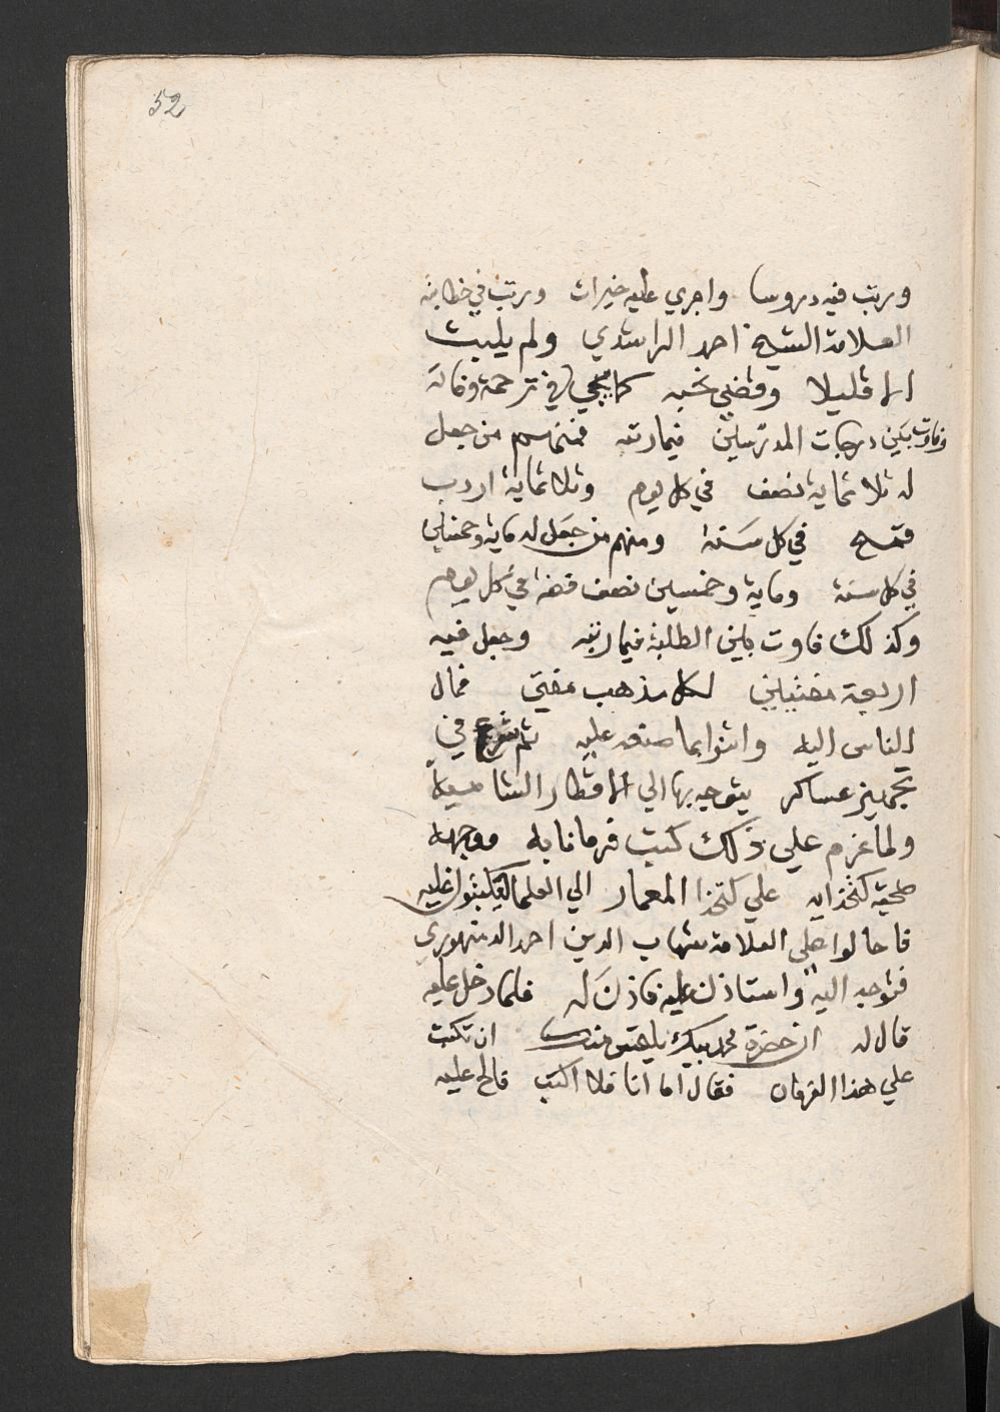 52
ورتب فيه دروسا واجري عليه خيرات ورتب في خطابته
العلامة الشيخ احمد الراشدي ولم يلبث
الا قليلا وقضي نحبه كما يجي في ترجمة وفاته
وفاوت بين درجات المدرسين فيما رتبه فمنهم من جعل
له ثلاثماية نصف في كل يوم وثلاثماية اردب
قمح في كل سنة ومنهم من جعل له ماية وخمسين
في كل سنة وماية وخمسين نصف فضة في كل يوم
وكذلك فاوت بين الطلبة فيما رتبه وجعل فيه
اربعة مفتيين لكل مذهب مفتي فمال
الناس اليه واثنوا بما صنعه عليه ثم شرع في
تجهيز عساكر يتوجه بها الي الاقطار الشامية
ولما عزم علي ذلك كتب فرمانا به ووجهه
صحبة كتخدايه علي كتخدا المعمار الي العلما ليكتبوا عليه
فاحالوا علي العلامة شهاب الدين احمد الدمنهوري
فتوجه اليه واستاذن عليه فاذن له فلما دخل عليه
قال له ان حضرة محمد بيك يلتمس منك ان تكتب
علي هذا الفرمان فقال اما انا فلا اكتب فالح عليه